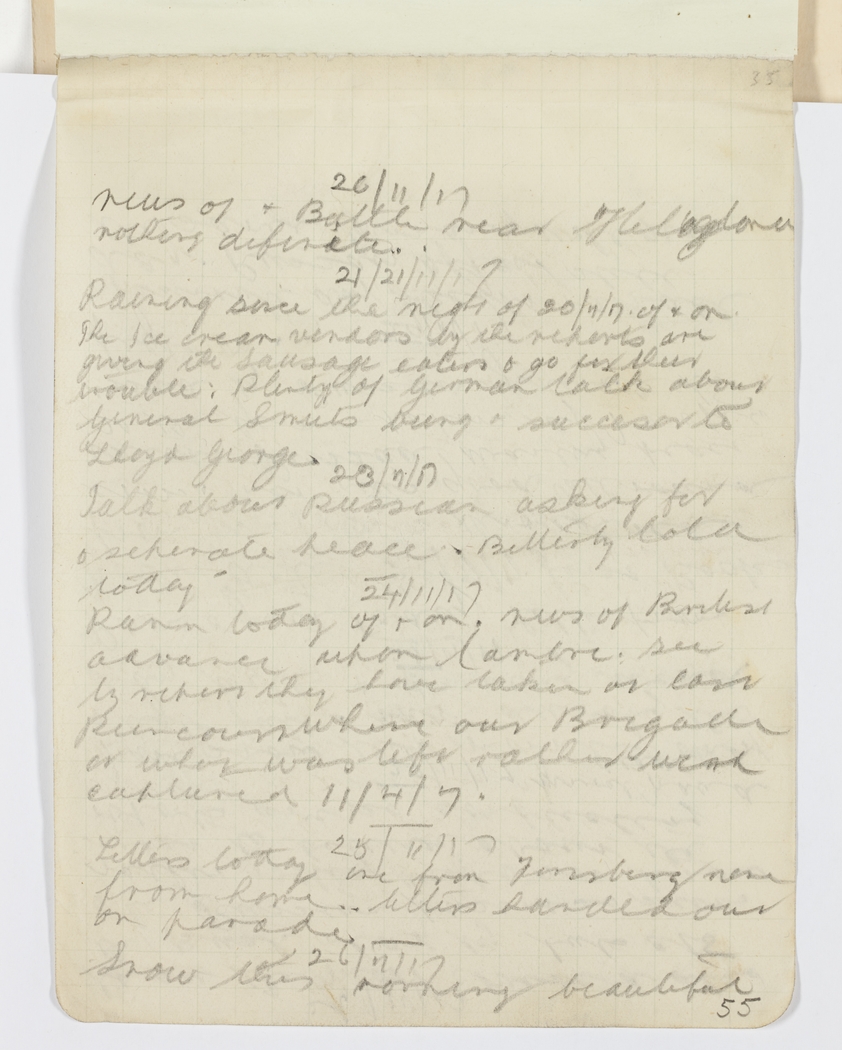 35
20/11/17
news of a Battle near
nothing definite.
21/21/11/17
Raining since the night of 20/11/17. of & on.
The Ice cream vendors by the reports are
giving the Sausage eaters a go for their
trouble: Plenty of German talk about
General Smuts being a succesor to
Lloyd George.
23/11/17
Talk about Russian asking for
a seperate peace. Bitterly Cold
today
24/11/17
Rain today of & on. news of British
advance upon Cambrc. see
by reports they have taken at last
where our Brigade
or what was left rather went
captured 11/4/17.
25/11/17
Letters today one from none
from home.. letters handed out
on parade.
26/11/17
Snow this morning beautiful
55